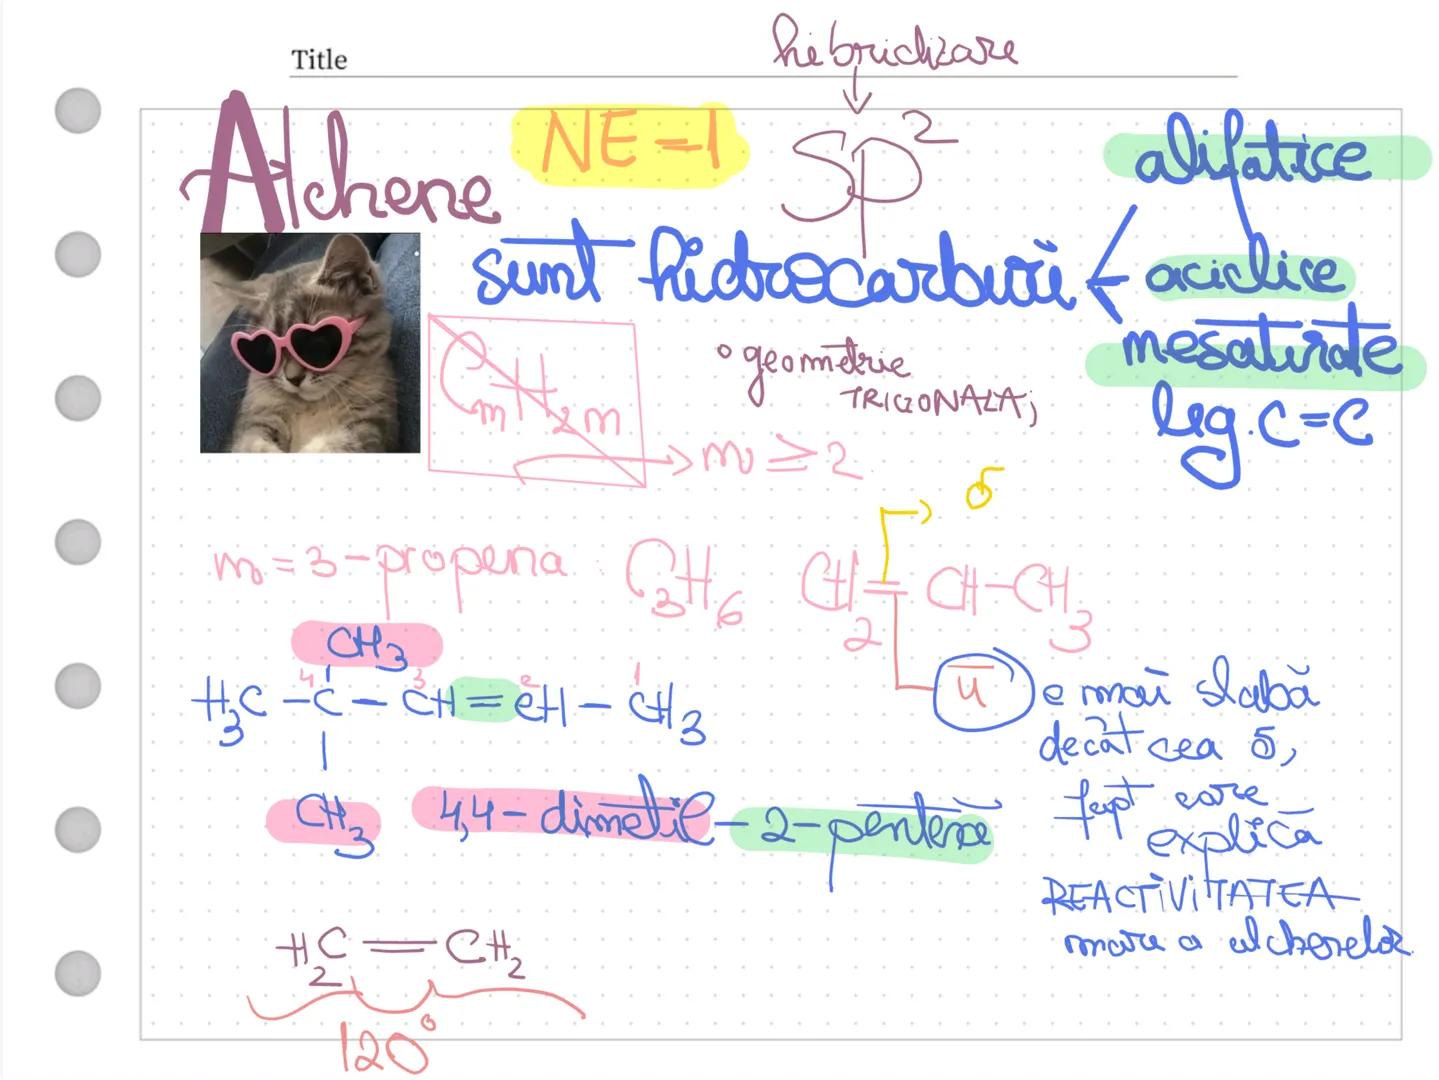 Title
hibridizare
Alchene
NE=1
SP²
alifatice
sunt hidrocarburi
aciclice
nesaturate
leg. C=C
CnH2n
→ n ≥ 2
° geometrie
TRIGONALA;
σ
n=3-propena C3H6 CH2=CH-CH3
π
e mai slabă
decât cea σ,
fapt care
explică
REACTIVITATEA
mare a alchenelor
CH3
4 3 2 1
H3C - C - CH = CH - CH3
CH3
4,4-dimetil-2-pentena
H2C = CH2
120°